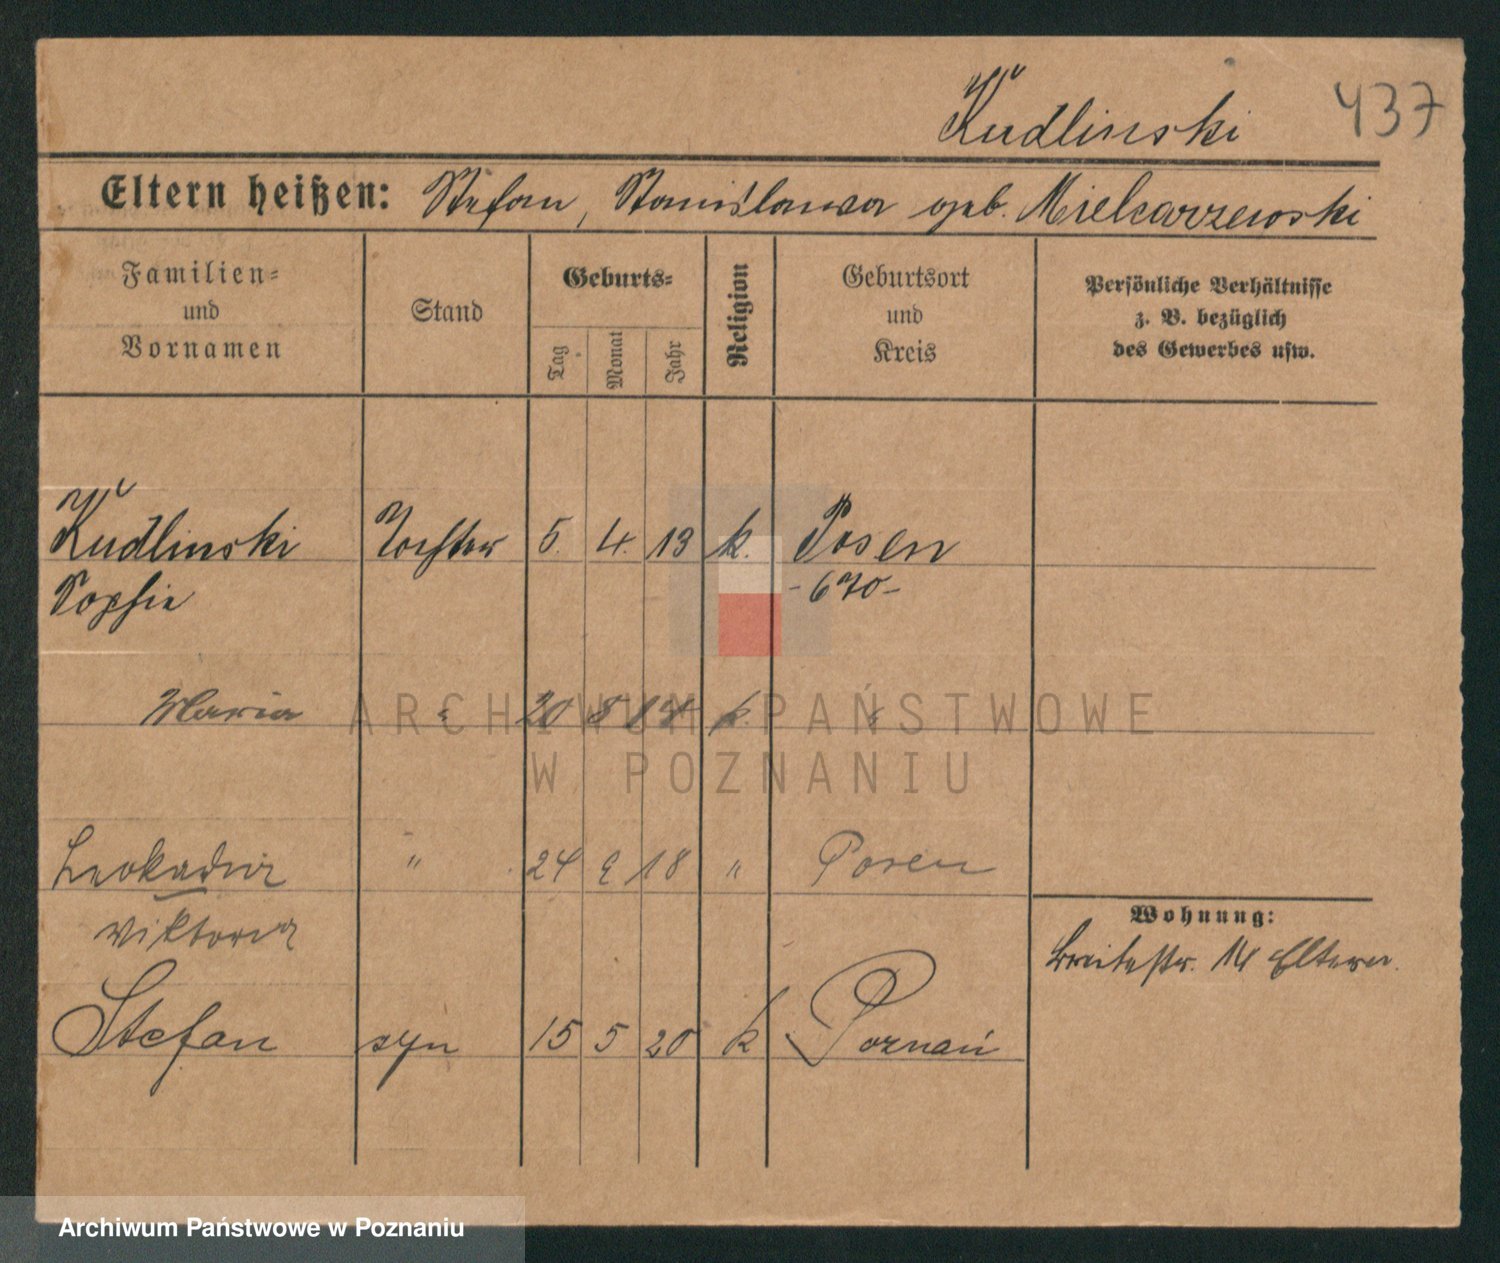 Kudlinski 437
Eltern heißen: Stefan, Stanislawa geb. Mielcarzewski
Familien=
und
Vornamen
Stand
Geburts=
Tag
Monat
Jahr
Religion
Geburtsort
und
Kreis
Persönliche Verhältnisse
z. B. bezüglich
des Gewerbes usw.
Kudlinski Tochter 5. 4. 13 k. Posen
Sophie -670-
Maria " 20 8 14 k. "
Leokadia " 24 9 18 " Posen
Viktoria
Wohnung:
Breitestr. 14 Eltern.
Stefan syn 15 5 20 k Poznań
ARCHIWUM PAŃSTWOWE
W POZNANIU
Archiwum Państwowe w Poznaniu